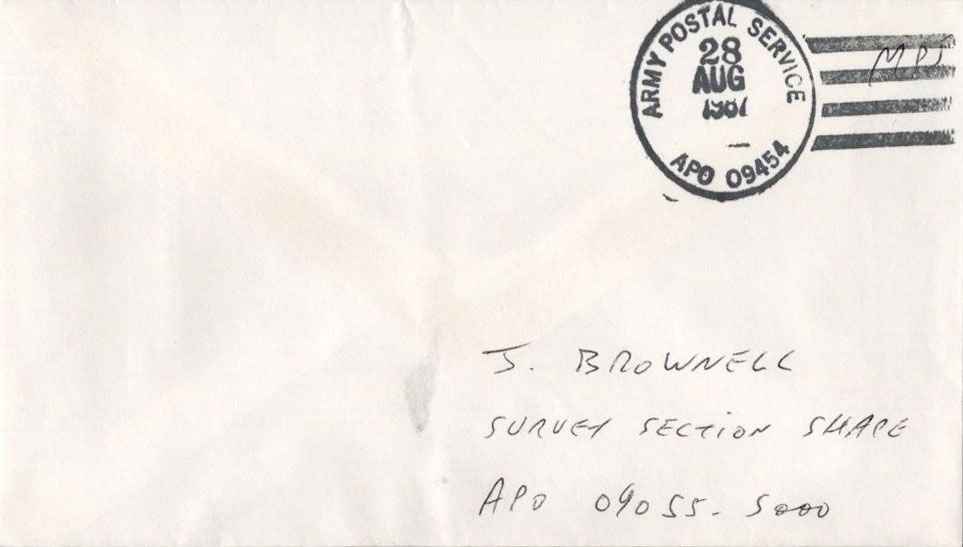 ARMY POSTAL SERVICE
28
AUG
1987
APO 09454
MPS
J. BROWNELL
SURVEY SECTION SHAPE
APO 09055-5000